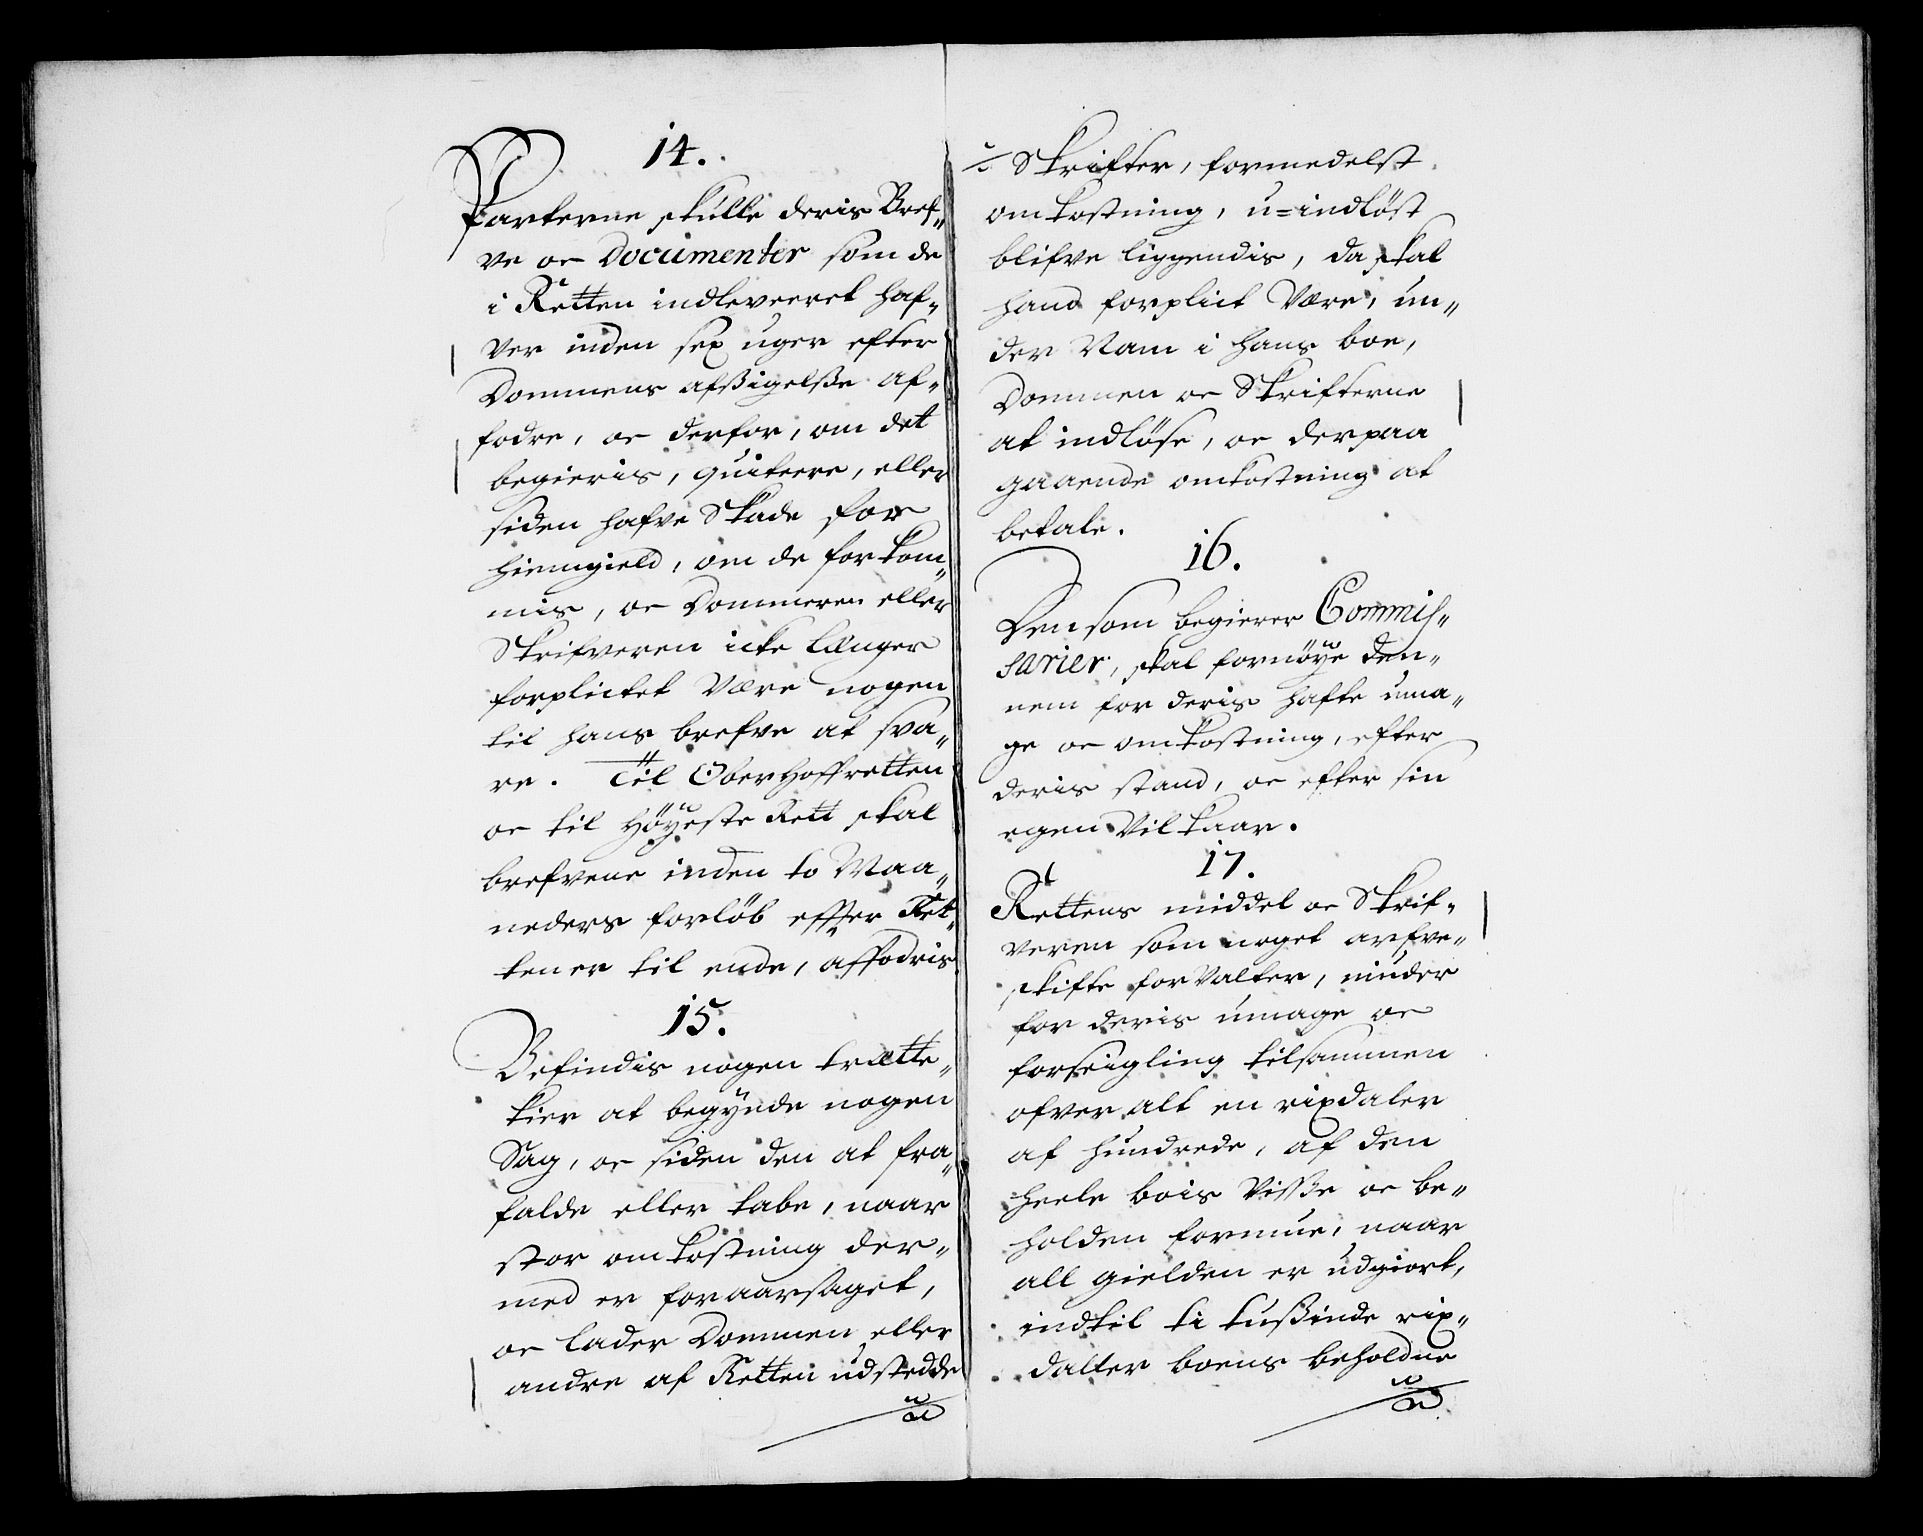 14.
Parterne skulle deris Bref-
ve oc Documenter som de
i Retten indleveeret haf-
ver inden sex uger efter
Dommens afsigelße af-
fodre, oc derfor, om det
begieris, quitere, eller
siden hafve Skade for
hiemgield, om de forkom-
mis, oc Dommeren eller
Skrifveren icke længer
forplictet være nogen
til hans brefve at sva-
re. Til OberHoffretten
oc til Höyeste Rett skal
brefvene inden to Maa-
neders forlöb effter Ret-
ten er til ende, affodris
15.
Befindis nogen trætte-
kier at begynde nogen
Sag, oc siden den at fra-
falde eller tabe, naar
stor omkostning der-
med er foraarsaget,
oc lader Dommen eller
andre af Retten udstedde
Skrifter, formedelst
omkostning, u=indlöst
blifve liggendis, da skal
hand forplict være, un-
der Nam i hans boe,
Dommen oc Skrifterne
at indlöse, oc derpaa
gaaende omkostning at
betale.
16.
Den som begierer Commis-
sarier, skal fornöye den-
nem for deris hafte uma-
ge oc omkostning, efter
deris stand, oc efter sin
egen Vilkaar.
17.
Rettens middel oc Skrif-
veren som noget arfve-
skifte forvalter, niuder
for deris umage oc
forseigling tilsammen
ofver alt en rixdaler
af hundrede, af den
heele bois visse oc be-
holden formue, naar
all gielden er udgiort,
indtil ti tußinde rix-
daller boens beholdne